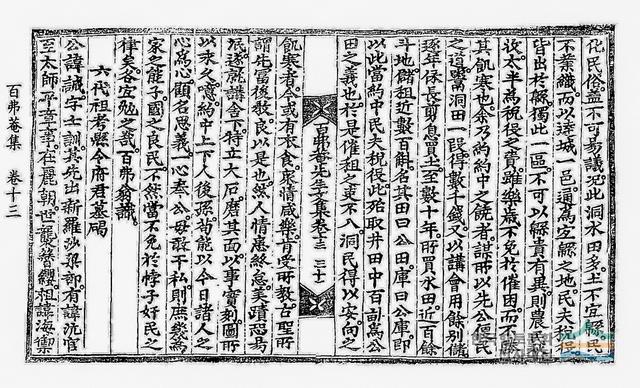 化民俗盖不可易議況此洞水田多土不宜緜民
不業織而以達城一邑通爲宜緜之地民夫稅役
皆出於緜獨此一區不可以緜貴有異則農
收太半爲稅役之費雖樂歲不免於催困而不
其飢寒也余乃約約中之饒者謀所以先公便民
之道買洞田一段得數千錢又以講會用餘別儲
逐年俵長剪息買土至數十年所買水田近百餘
斗地儲租近數百斛名其田曰公田庫曰公庫即
以此當約中民夫稅役此殆取井田中百畝爲公
田之義也於是催租之吏不入洞民得以安向之
百弗菴先生文集卷之十三 三十
飢寒者今或有衣食衆情咸樂肯受所敎古聖所
謂先富後敎良以是也然人情患終怠美蹟恐易
泯遂就講舍下得立大石磨其面以事實刻圖所
以永久意約中上下人後孫苟能以今日諸人之
心爲心顧名思義一心奉公毋敢干私則庶幾爲
家之能子國之良民不然當不免於悖子奸民之
律矣各宜勉之哉百弗翁識
六代祖考縣令府君墓碣
公諱誠字士訓其先出新羅沙梁部有諱沆官
至太師子章事在麗朝世襲簪纓祖諱海禦
百弗菴集 卷十三